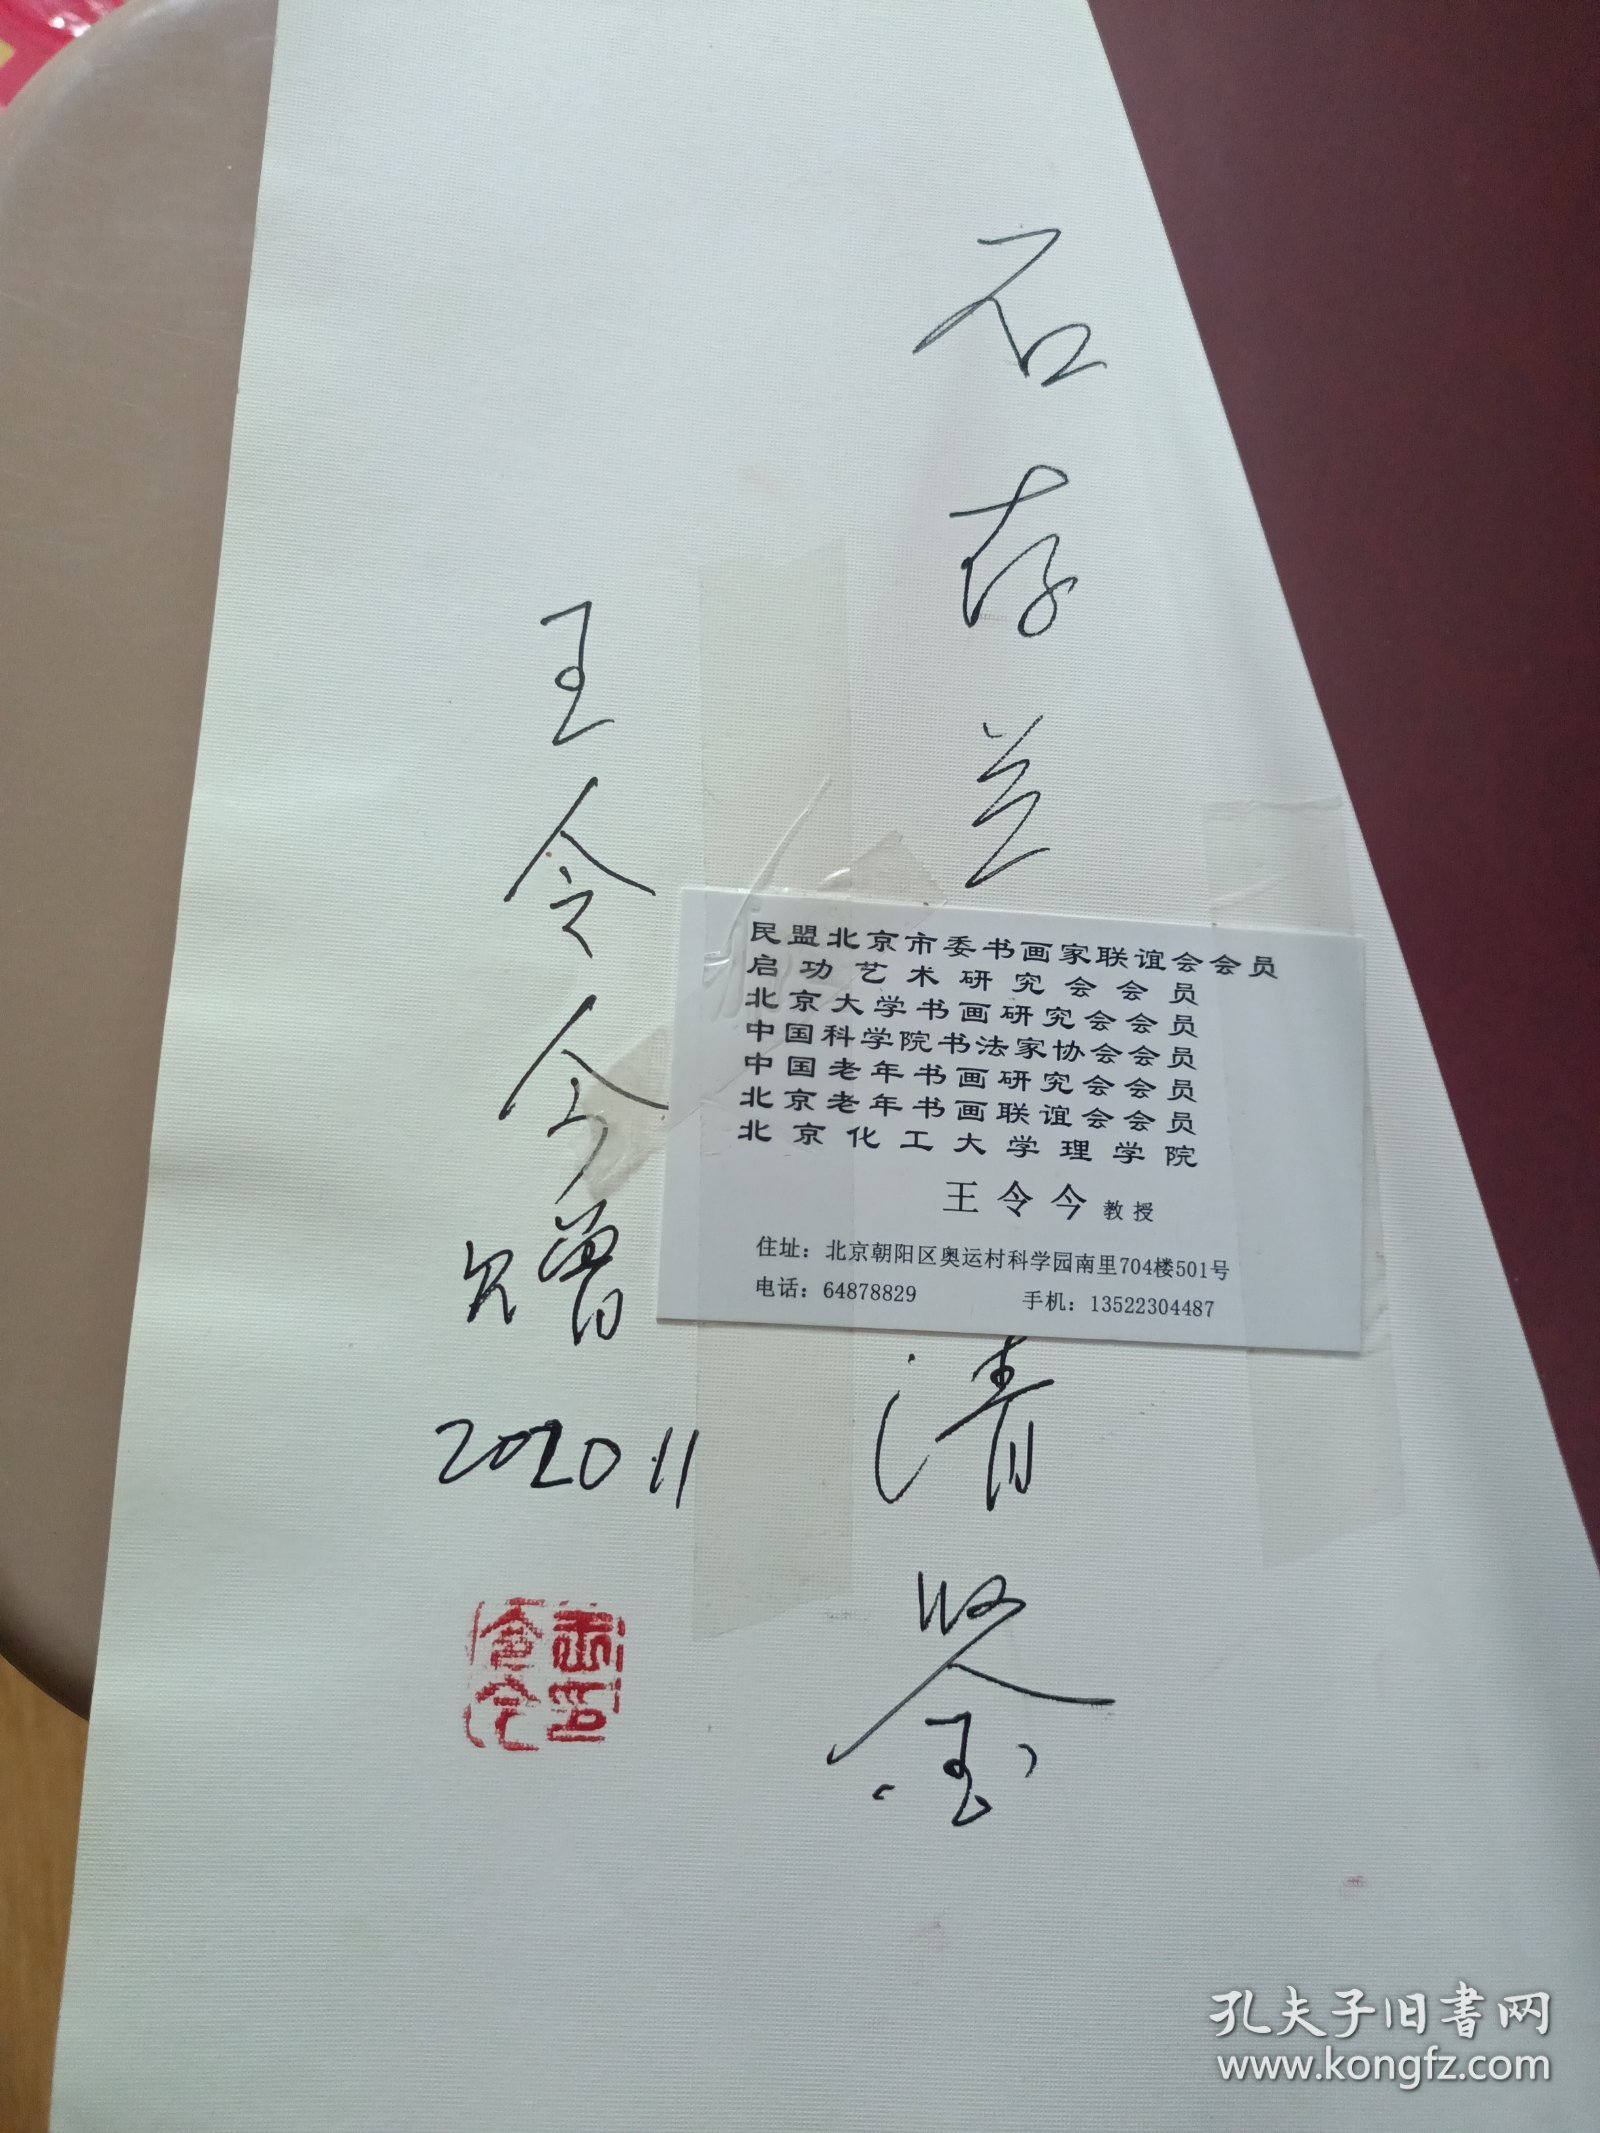 石存兰
清鉴
王令今赠
2020.11
民盟北京市委书画家联谊会会员
启功艺术研究会会员
北京大学书画研究会会员
中国科学院书法家协会会员
中国老年书画研究会会员
北京老年书画联谊会会员
北京化工大学理学院
王令今 教授
住址：北京朝阳区奥运村科学园南里704楼501号
电话：64878829 手机：13522304487
孔夫子旧书网
www.kongfz.com